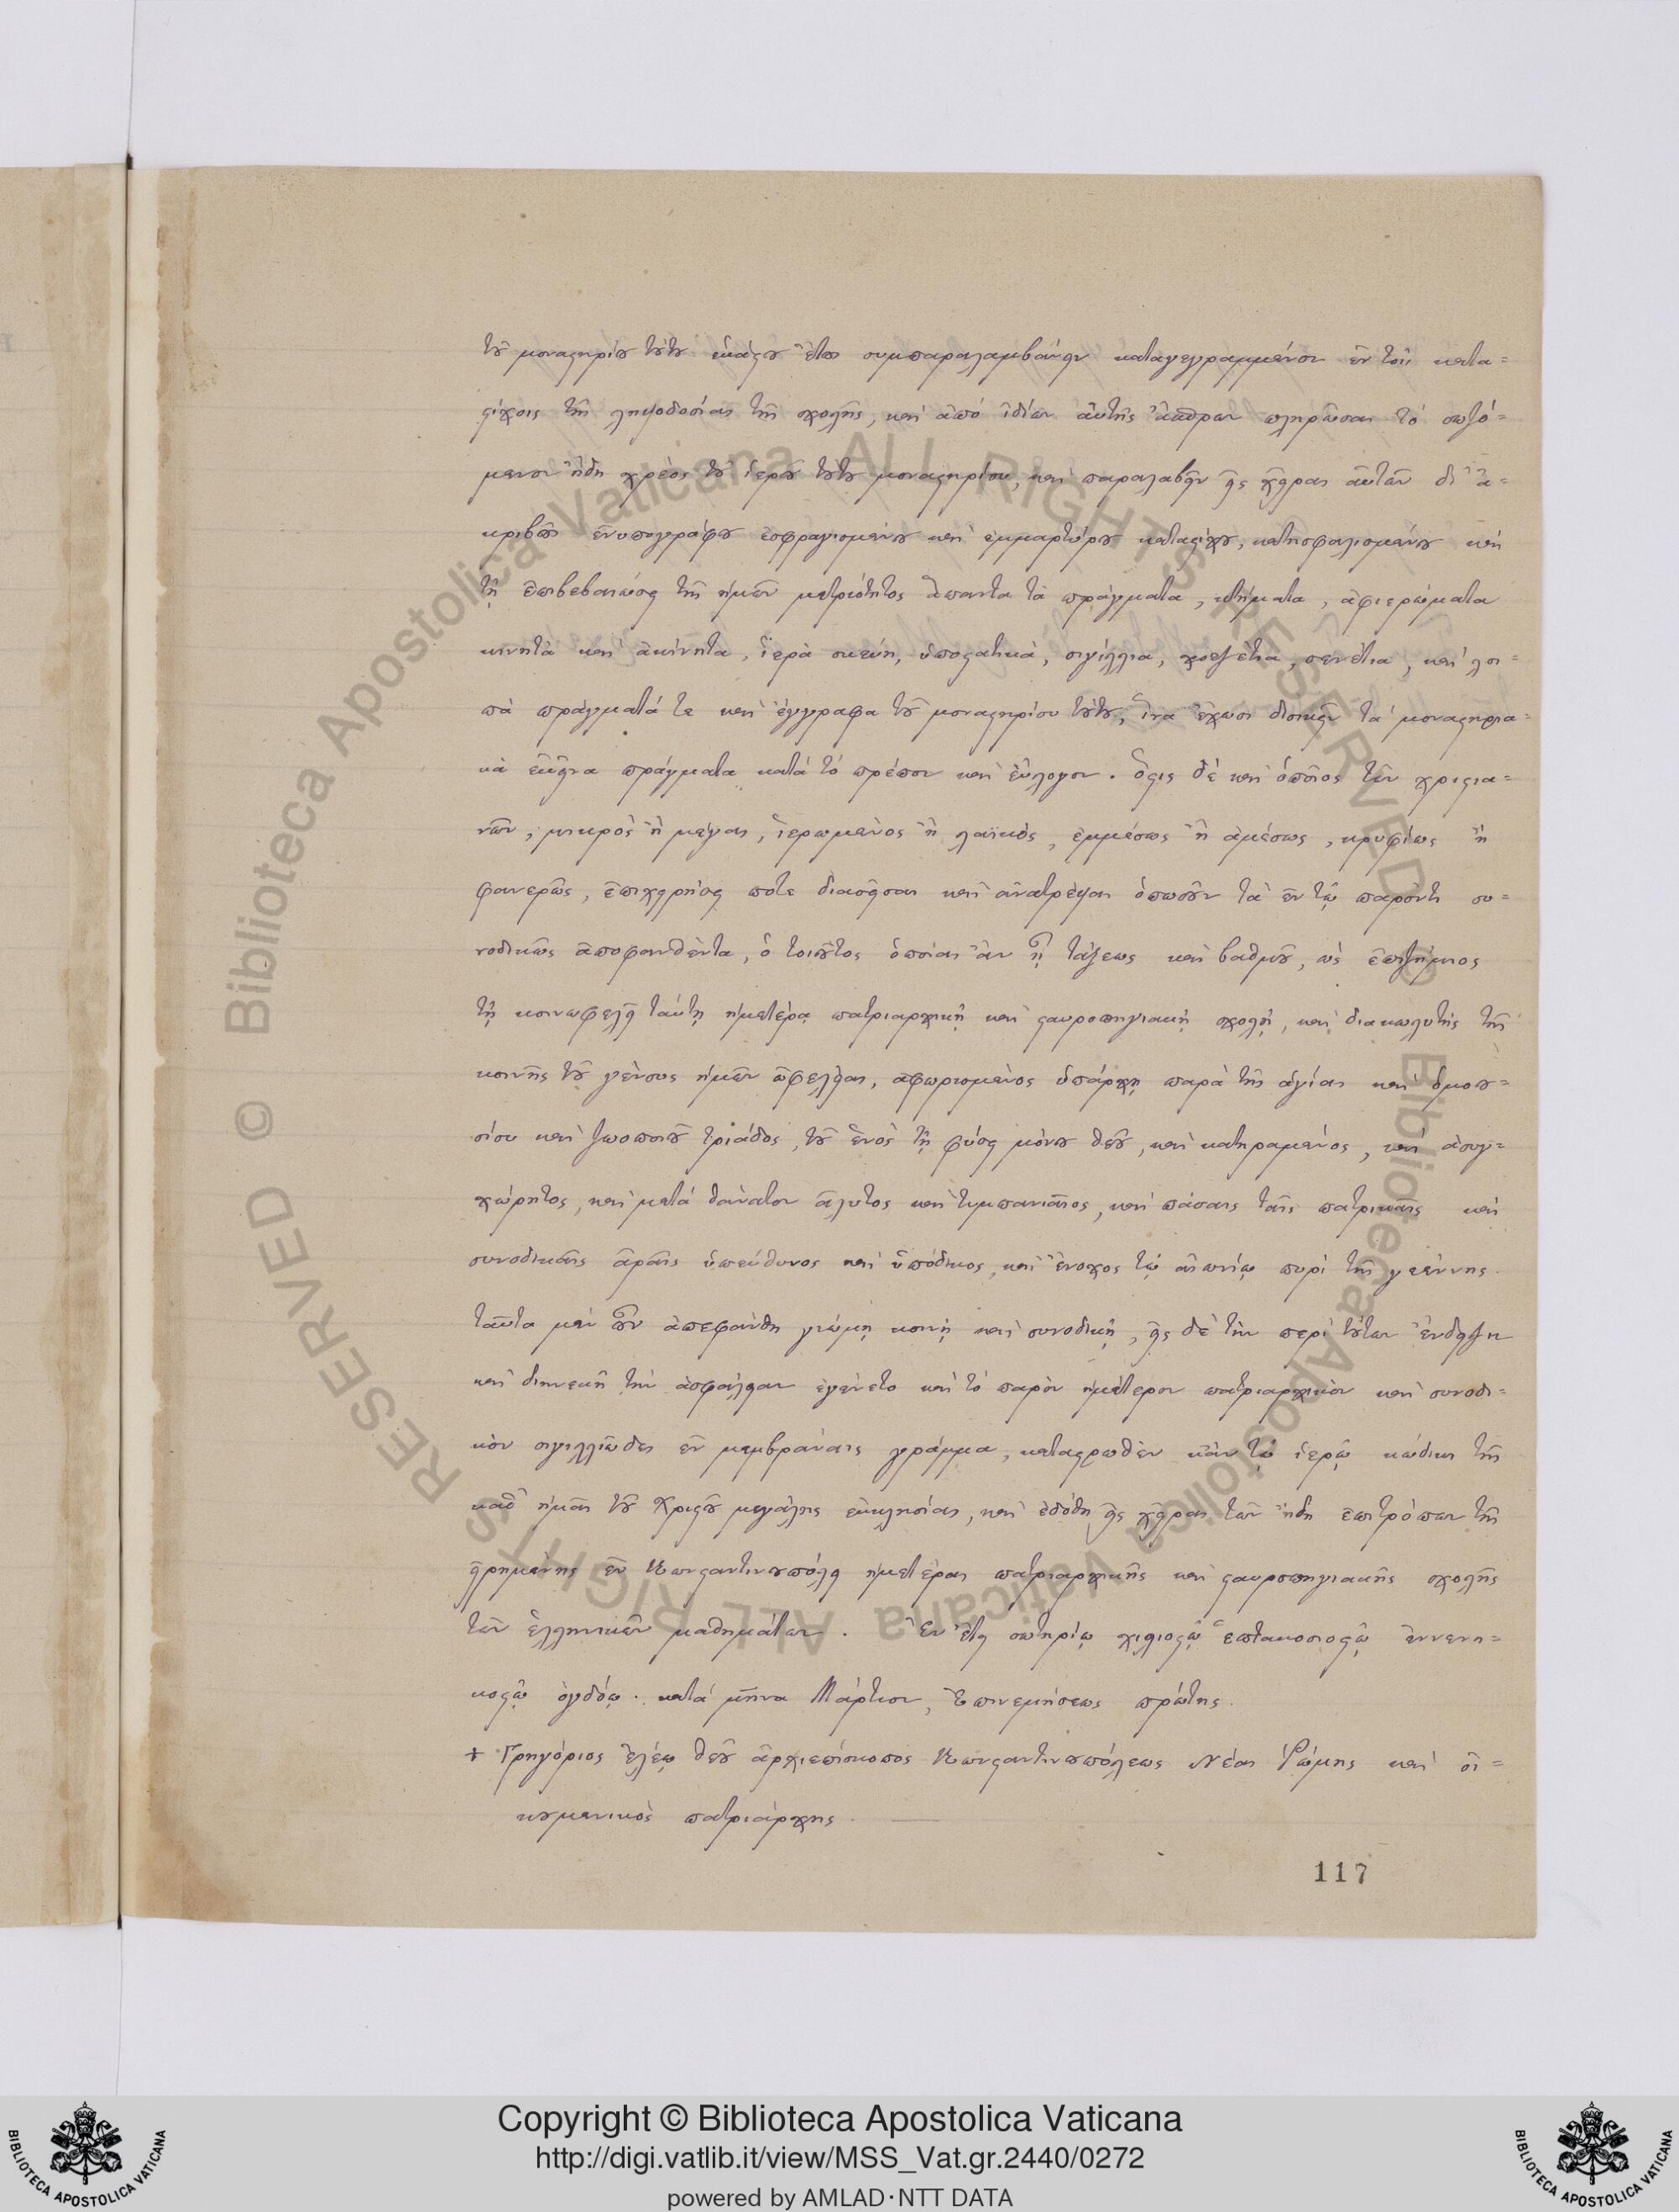 τȣ̃ μοναςηρίȣ τȣ́τȣ ἑκάςȣ ἔτȣς συμπαραλαμβάνειν καταγεγραμμένον ἐν τοῖς κατα=
ςίχοις τῆς ληψοδοσίας τῆς σχολῆς, καὶ ἀπό ἰδίων αὐτῆς πληρῶσαι τὸ σωζό=
μενον ἤδη χρέος τȣ̃ ἱερȣ̃ τȣ́τȣ μοναςηρίου, καὶ παραλαβεῖν εἰς χεῖρας αὐτῶν δι᾽ ἀ=
κριβȣ̃ς ἐνυπογράφȣ ἐσφραγισμένȣ καὶ ἐμμαρτύρȣ καταςίχȣ, κατησφαλισμένȣ καὶ
τῇ ἐπιβεβαιώσει τῆς ἡμῶν μετριότητος ἅπαντα τὰ πράγματα, κτήματα, ἀφιερώματα
κινητὰ καὶ ἀκίνητα, ἱερὰ σκεύη, ὑποςατικὰ, σιγίλλια, χοτζέτια, σενέτια, καὶ λοι=
πὰ πράγματά τε καὶ ἔγγραφα τȣ̃ μοναςηρίου τȣ́τȣ, ἵνα ἔχωσι διοικεῖν τὰ μοναςηρια=
κὰ ἐκεῖνα πράγματα κατὰ τὸ πρέπον καὶ εὔλογον. ὅςις δὲ καὶ ὁποῖος τῶν χριςια=
νῶν, μικρὸς ἢ μέγας, ἱερωμένος ἢ λαϊκὸς, ἐμμέσως ἢ ἀμέσως, κρυφίως ἢ
φανερῶς, ἐπιχειρήσει ποτὲ διασεῖσαι καὶ ἀνατρέψαι ὁπωσȣ̃ν τὰ ἐν τῷ παρόντι συ=
νοδικῶς ἀποφανθέντα, ὁ τοιȣ̃τος ὁποίας ἂν ᾖ τάξεως καὶ βαθμȣ̃, ὡς ἐπιζήμιος
τῇ κοινωφελεῖ ταύτῃ ἡμετέρᾳ πατριαρχικῇ καὶ ςαυροπηγιακῇ σχολῇ, καὶ διακωλυτὴς τῆς
κοινῆς τȣ̃ γένους ἡμῶν ὠφελείας, ἀφωρισμένος ὑπάρχῃ παρὰ τῆς ἁγίας καὶ ὁμοȣ=
σίου καὶ ζωοποιȣ̃ τριάδος, τȣ̃ ἑνὸς τῇ φύσει μόνȣ θεȣ̃, καὶ κατηραμένος, καὶ ἀσυγ=
χώρητος, καὶ μετὰ θάνατον ἄλυτος καὶ τυμπανιαῖος, καὶ πάσαις ταῖς πατρικαῖς καὶ
συνοδικαῖς ἀραῖς ὑπεύθυνος καὶ ὑπόδικος, καὶ ἔνοχος τῷ αἰωνίῳ πυρὶ τῆς γεέννης.
ταῦτα μὲν ȣ̓̃ν ἀπεφάνθη γνώμῃ κοινῇ καὶ συνοδικῇ, εἰς δὲ τὴν περὶ τȣ́των ἔνδειξιν
καὶ διηνεκῆ τὴν ἀσφάλειαν ἐγένετο καὶ τὸ παρὸν ἡμέτερον πατριαρχικὸν καὶ συνοδι=
κὸν σιγιλλιῶδες ἐν μεμβράναις γράμμα, καταςρωθὲν κἀν τῷ ἱερῷ κώδικι τῆς
καθ᾽ ἡμᾶς τȣ̃ Χριςȣ̃ μεγάλης ἐκκλησίας, καὶ ἐδόθη εἰς χεῖρας τῶν ἤδη ἐπιτρόπων τῆς
εἰρημένης ἐν Κωνςαντινȣπόλει ἡμετέρας πατριαρχικῆς καὶ ςαυροπηγιακῆς σχολῆς
τῶν ἑλληνικῶν μαθημάτων. Ἐν ἔτει σωτηρίῳ χιλιοςῷ ἑπτακοσιοςῷ ἐννενη=
κοςῷ ὀγδόῳ. κατὰ μῆνα Μάρτιον, Ἐπινεμήσεως πρώτης.
+ Γρηγόριος ἐλέῳ θεȣ̃ ἀρχιεπίσκοπος Κωνςαντινȣπόλεως Νέας Ῥώμης καὶ οἰ=
κȣμενικὸς πατριάρχης.
117
Copyright © Biblioteca Apostolica Vaticana
http://digi.vatlib.it/view/MSS_Vat.gr.2440/0272
powered by AMLAD·NTT DATA